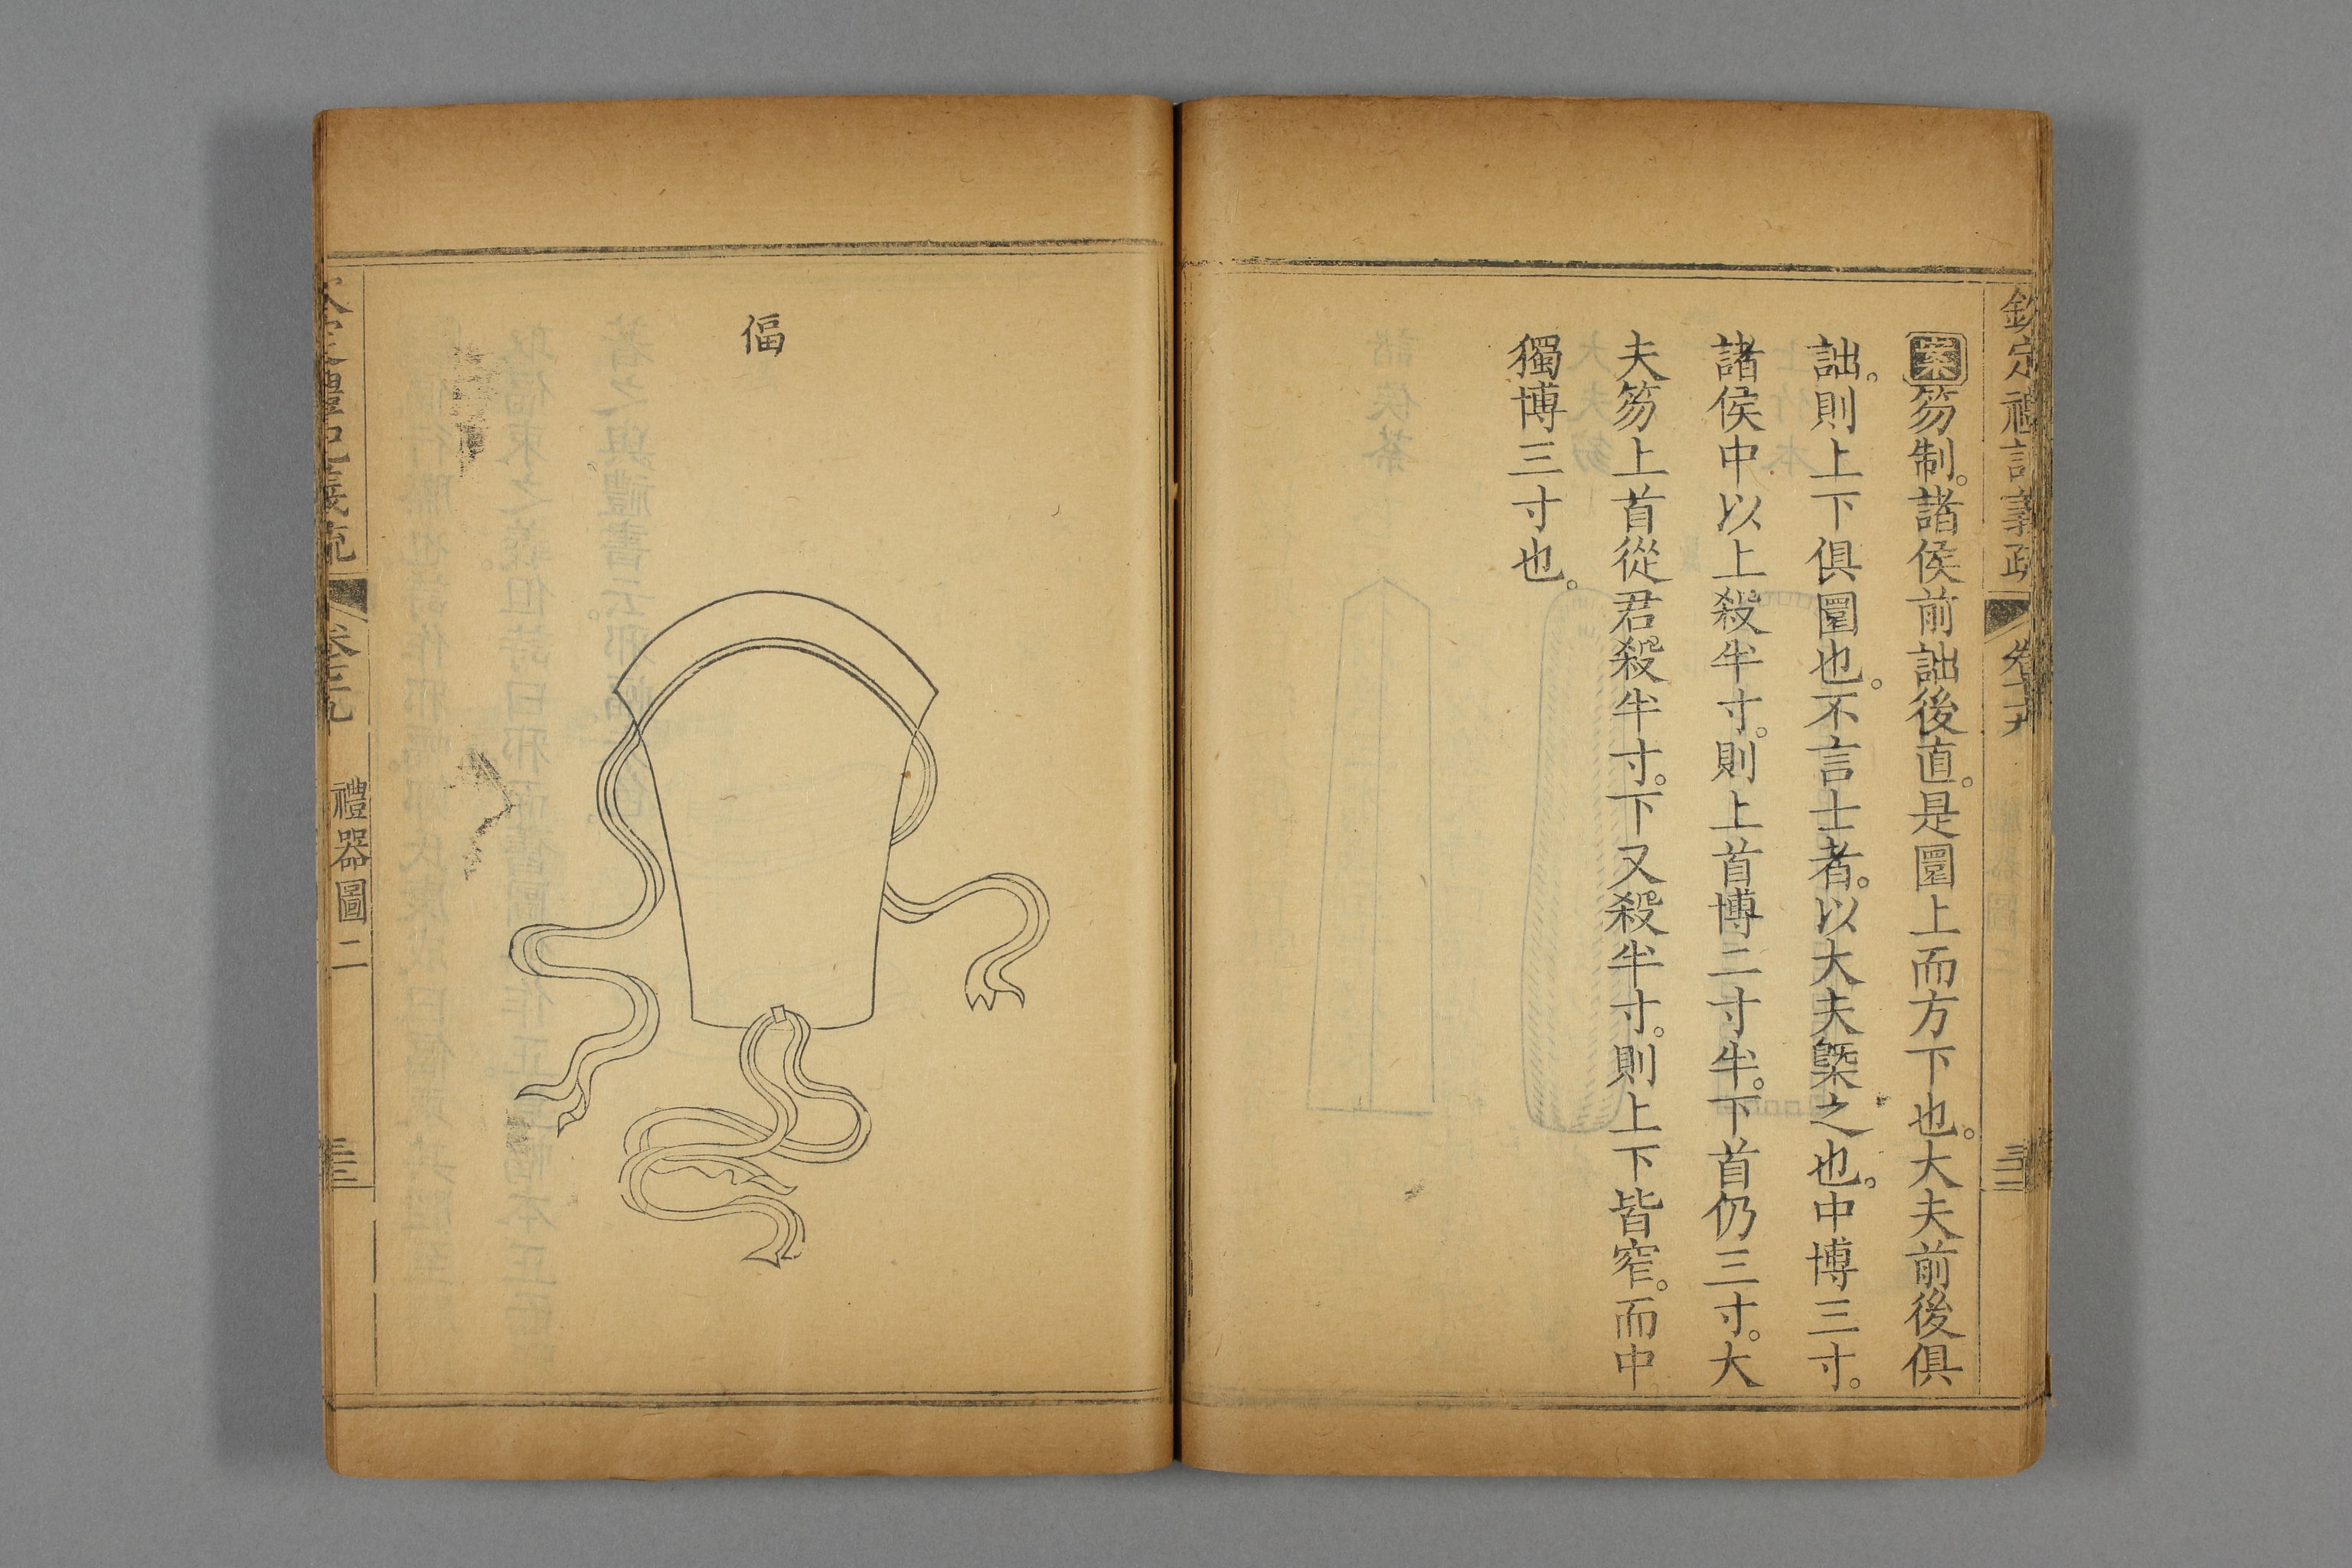 案笏制。諸侯前詘後直。是圜上而方下也。大夫前後俱
詘。則上下俱圜也。不言士者。以大夫槩之也。中博三寸。
諸侯中以上殺半寸。則上首博二寸半。下首仍三寸。大
夫笏上首從君殺半寸。下又殺半寸。則上下皆窄。而中
獨博三寸也。
偪
禮器圖二